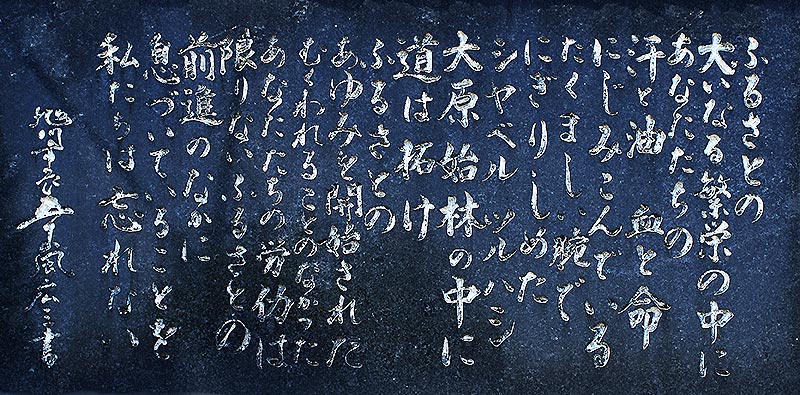 ふるさとの
大いなる繁栄の中に
あなたたちの
汗と油 血と命
にじみこんでいる
たくましい腕で
にぎりしめた
シャベル ツルハシ
大原始林の中に
道は拓け
ふるさとの
あゆみを開始された
むくわれることのなかった
あなたたちの労仂は
限りないふるさとの
前進のなかに
息づいていることを
私たちは忘れない
旭川市長 五十嵐広三書